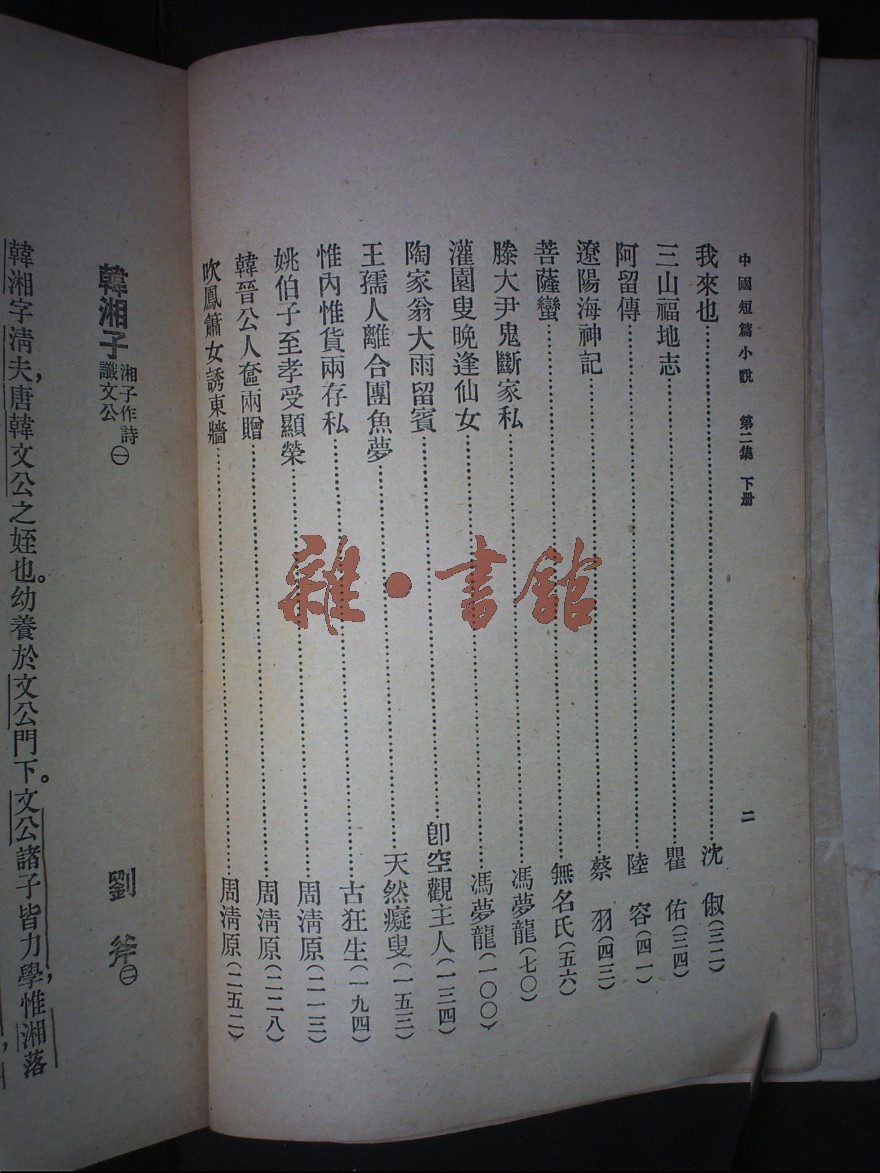 中國短篇小說 第二集 下册
二
我來也……沈俶(三二)
三山福地志……瞿佑(三四)
阿留傳……陸容(四一)
遼陽海神記……蔡羽(四三)
菩薩蠻……無名氏(五六)
滕大尹鬼斷家私……馮夢龍(七〇)
灌園叟晚逢仙女……馮夢龍(一〇〇)
陶家翁大雨留賓……卽空觀主人(一三四)
王孺人離合團魚夢……天然癡叟(一五三)
惟內惟貨兩存私……古狂生(一九四)
姚伯子至孝受顯榮……周淸原(二一三)
韓晉公人奩兩贈……周淸原(二二八)
吹鳳簫女誘東牆……周淸原(二五二)
韓湘子 湘子作詩讖文公㊀
劉斧㊁
韓湘字淸夫,唐韓文公之姪也。幼養於文公門下。文公諸子皆力學,惟湘落
雜·書館